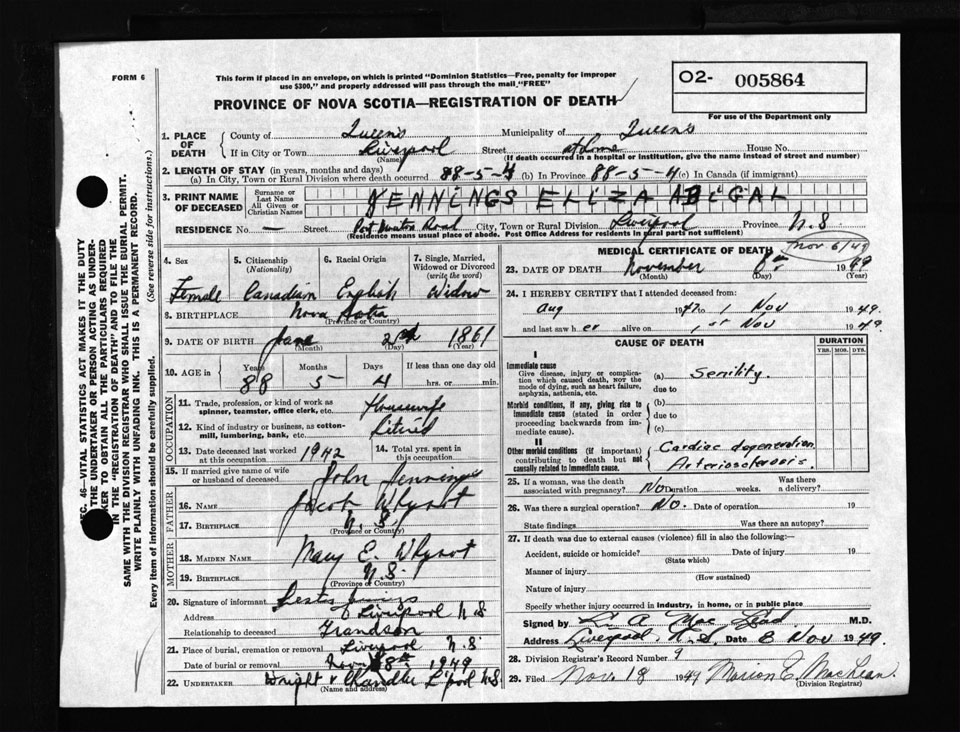 FORM 6
This form if placed in an envelope, on which is printed "Dominion Statistics—Free, penalty for improper
use $300," and properly addressed will pass through the mail "FREE"
O2- 005864
PROVINCE OF NOVA SCOTIA—REGISTRATION OF DEATH
For use of the Department only
SEC. 46—VITAL STATISTICS ACT MAKES IT THE DUTY
OF THE UNDERTAKER OR PERSON ACTING AS UNDER-
TAKER TO OBTAIN ALL THE PARTICULARS REQUIRED
IN THE "REGISTRATION OF DEATH" AND TO FILE THE
SAME WITH THE DIVISION REGISTRAR WHO SHALL ISSUE THE BURIAL PERMIT.
WRITE PLAINLY WITH UNFADING INK. THIS IS A PERMANENT RECORD.
Every item of information should be carefully supplied. (See reverse side for instructions.)
1. PLACE OF DEATH County of Queens Municipality of Queens
If in City or Town Liverpool Street at home House No.
(Name) (If death occurred in a hospital or institution, give the name instead of street and number)
2. LENGTH OF STAY (in years, months and days)
(a) In City, Town or Rural Division where death occurred 88-5-4 (b) In Province 88-5-4 (c) In Canada (if immigrant)
3. PRINT NAME OF DECEASED Surname or Last Name All Given or Christian Names JENNINGS ELIZA ABIGAL
RESIDENCE No. — Street Port Road City, Town or Rural Div. Liverpool Province N.S
(Residence means usual place of abode. Post Office Address for residents in rural parts not sufficient)
4. Sex Female
5. Citizenship (Nationality) Canadian
6. Racial Origin English
7. Single, Married, Widowed or Divorced (write the word) Widow
8. BIRTHPLACE Nova Scotia
(Province or Country)
9. DATE OF BIRTH June 2nd 1861
(Month) (Day) (Year)
10. AGE in Years 88 Months 5 Days 4 If less than one day old hrs. or min.
OCCUPATION
11. Trade, profession, or kind of work as spinner, teamster, office clerk, etc. Housewife
12. Kind of industry or business, as cotton-mill, lumbering, bank, etc. Retired
13. Date deceased last worked at this occupation 1942 14. Total yrs. spent in this occupation
15. If married give name of wife or husband of deceased John Jennings
FATHER
16. NAME Jacob Whynot
17. BIRTHPLACE N.S.
(Province or Country)
MOTHER
18. MAIDEN NAME Mary E. Whynot
19. BIRTHPLACE N.S.
(Province or Country)
20. Signature of informant Lester
Address Liverpool N.S
Relationship to deceased Grandson
21. Place of burial, cremation or removal Liverpool N.S
Date of burial or removal Nov 8th 1949
22. UNDERTAKER Wright & Chandler L'pool N.S
(Name and address)
MEDICAL CERTIFICATE OF DEATH
Nov 6/49
23. DATE OF DEATH November 6th 1949
(Month) (Day) (Year)
24. I HEREBY CERTIFY that I attended deceased from:
Aug 1947 to 1 Nov 1949
and last saw her alive on 1st Nov 1949
CAUSE OF DEATH DURATION
YRS. MOS. DYS.
I
Immediate cause
Give disease, injury or complication which caused death, not the mode of dying, such as heart failure, asphyxia, asthenia, etc.
(a) Senility.
due to
Morbid conditions, if any, giving rise to immediate cause (stated in order proceeding backwards from immediate cause).
(b)
due to
(c)
II
Other morbid conditions (if important) contributing to death but not causally related to immediate cause.
Cardiac degeneration
Arteriosclerosis.
25. If a woman, was the death associated with pregnancy? No Duration weeks. Was there a delivery?
26. Was there a surgical operation? No. Date of operation 19
State findings Was there an autopsy?
27. If death was due to external causes (violence) fill in also the following:
Accident, suicide or homicide? Date of injury 19
(State which)
Manner of injury
(How sustained)
Nature of injury
Specify whether injury occurred in industry, in home, or in public place
Signed by A Mac Lead M.D.
Address Liverpool, N.S. Date 8 Nov 1949.
28. Division Registrar's Record Number 9
29. Filed Nov. 18 1949 Marion E. MacLean.
(Division Registrar)